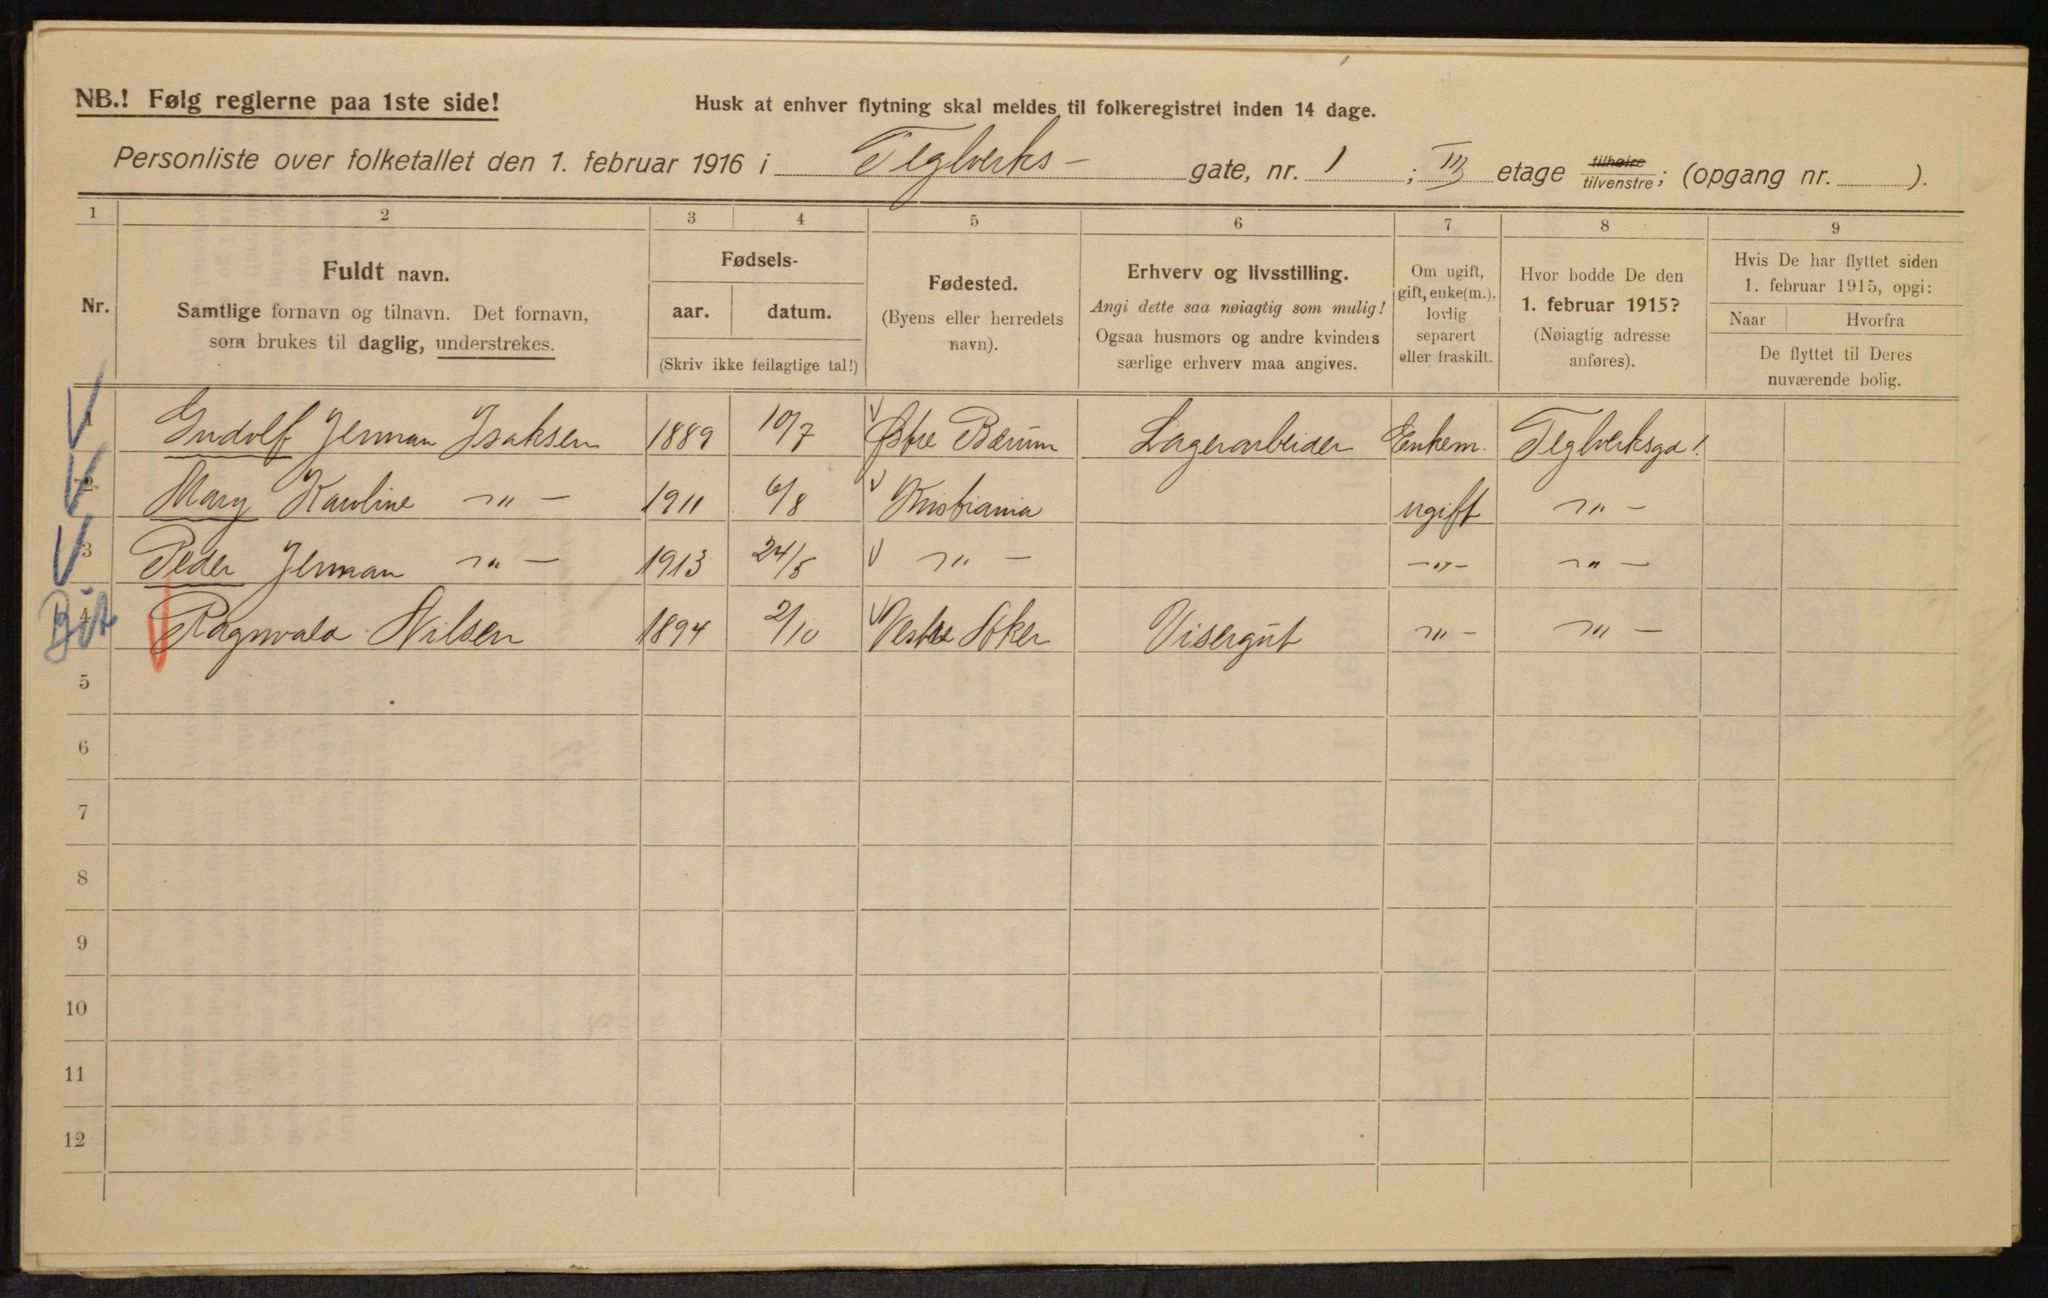 NB.! Følg reglerne paa 1ste side!
Husk at enhver flytning skal meldes til folkeregistret inden 14 dage.
Personliste over folketallet den 1. februar 1916 i Teglverks- gate, nr. 1 ; III etage tilhøire tilvenstre; (opgang nr. ).
1 2 3 4 5 6 7 8 9
Nr.
Fuldt navn.
Samtlige fornavn og tilnavn. Det fornavn,
som brukes til daglig, understrekes.
Fødsels-
aar. datum.
(Skriv ikke feilagtige tal!)
Fødested.
(Byens eller herredets
navn).
Erhverv og livsstilling.
Angi dette saa nøiagtig som mulig!
Ogsaa husmors og andre kvinders
særlige erhverv maa angives.
Om ugift,
gift, enke(m.),
lovlig
separert
eller fraskilt.
Hvor bodde De den
1. februar 1915?
(Nøiagtig adresse
anføres).
Hvis De har flyttet siden
1. februar 1915, opgi:
Naar Hvorfra
De flyttet til Deres
nuværende bolig.
Jerman Isaksen 1889 10/7 Østre Bærum Lagerarbeider Enkem. Teglverksga 1.
2 Mary Karoline -"- 1911 6/8 Kristiania ugift -"-
3 Peder Jerman -"- 1913 24/5 -"- -"- -"-
4 Ragnvald Nilsen 1894 2/10 Vestre Aker Visergut -"- -"-
5
6
7
8
9
10
11
12